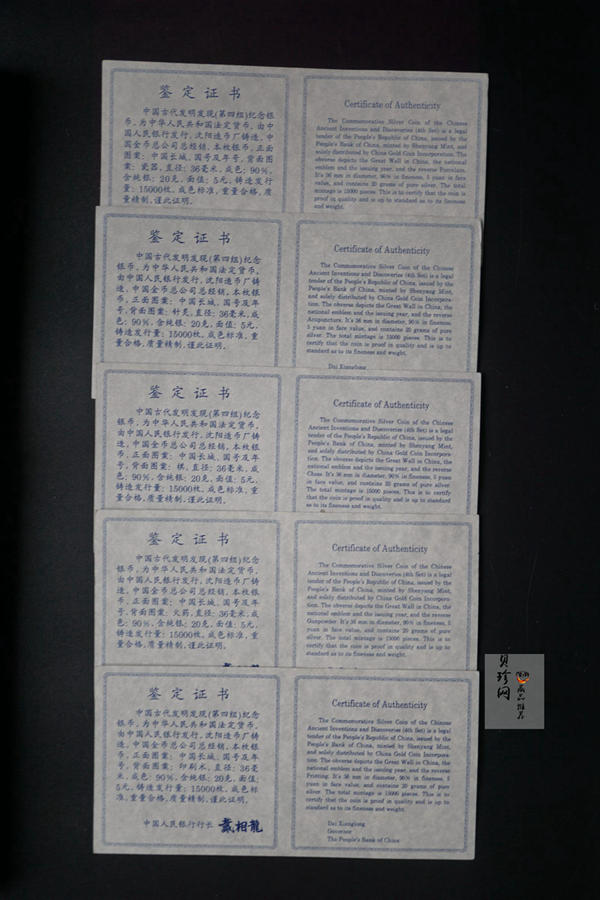 鉴定证书
中国古代发明发现(第四组)纪念银
币，为中华人民共和国法定货币，由
中国人民银行发行，沈阳造币厂铸造，
中国金币总公司总经销，本枚银币，正面
图案：中国长城，国号及年号，背面图
案：瓷器，直径：36毫米，成色：90％，
含纯银：20克，面值：5元，铸造发行
量：15000枚，成色标准，重量合格，质
量精制，谨此证明。
Certificate of Authenticity
The Commemorative Silver Coin of the Chinese
Ancient Inventions and Discoveries (4th Set) is a legal
tender of the People's Republic of China, issued by the
People's Bank of China, minted by Shenyang Mint, and
solely distributed by China Gold Coin Incorporation. The
obverse depicts the Great Wall in China, the national
emblem and the issuing year, and the reverse Porcelain.
It's 36 mm in diameter, 90% in fineness, 5 yuan in face
value, and contains 20 grams of pure silver. The total
mintage is 15000 pieces. This is to certify that the coin is
proof in quality and is up to standard as to its fineness
and weight.
鉴定证书
中国古代发明发现(第四组)纪念
银币，为中华人民共和国法定货币，
由中国人民银行发行，沈阳造币厂铸
造，中国金币总公司总经销，本枚银
币，正面图案：中国长城，国号及年
号，背面图案：针灸，直径：36毫米，成
色：90％，含纯银：20克，面值：5元，
铸造发行量：15000枚，成色标准，重
量合格，质量精制，谨此证明。
Certificate of Authenticity
The Commemorative Silver Coin of the Chinese
Ancient Inventions and Discoveries (4th Set) is a legal
tender of the People's Republic of China, issued by the
People's Bank of China, minted by Shenyang Mint,
and solely distributed by China Gold Coin Incorpora-
tion. The obverse depicts the Great Wall in China, the
national emblem and the issuing year, and the reverse
Acupuncture. It's 36 mm in diameter, 90% in fineness,
5 yuan in face value, and contains 20 grams of pure
silver. The total mintage is 15000 pieces. This is to
certify that the coin is proof in quality and is up to
standard as to its fineness and weight.
Dai Xianglong
鉴定证书
中国古代发明发现(第四组)纪念
银币，为中华人民共和国法定货币，
由中国人民银行发行，沈阳造币厂铸
造，中国金币总公司总经销，本枚银
币，正面图案：中国长城，国号及年
号，背面图案：棋，直径：36毫米，成
色：90％，含纯银：20克，面值：5元，
铸造发行量：15000枚，成色标准，重
量合格，质量精制，谨此证明。
Certificate of Authenticity
The Commemorative Silver Coin of the Chinese
Ancient Inventions and Discoveries (4th Set) is a legal
tender of the People's Republic of China, issued by the
People's Bank of China, minted by Shenyang Mint,
and solely distributed by China Gold Coin Incorpora-
tion. The obverse depicts the Great Wall in China, the
national emblem and the issuing year, and the reverse
Chess. It's 36 mm in diameter, 90% in fineness, 5 yuan
in face value, and contains 20 grams of pure silver.
The total mintage is 15000 pieces. This is to certify
that the coin is proof in quality and is up to standard
as to its fineness and weight.
鉴定证书
中国古代发明发现(第四组)纪念
银币，为中华人民共和国法定货币，
由中国人民银行发行，沈阳造币厂铸
造，中国金币总公司总经销，本枚银
币，正面图案：中国长城，国号及年
号，背面图案：火药，直径：36毫米，成
色：90％，含纯银：20克，面值：5元，
铸造发行量：15000枚，成色标准，重
量合格，质量精制，谨此证明。
Certificate of Authenticity
The Commemorative Silver Coin of the Chinese
Ancient Inventions and Discoveries (4th Set) is a legal
tender of the People's Republic of China, issued by the
People's Bank of China, minted by Shenyang Mint,
and solely distributed by China Gold Coin Incorpora-
tion. The obverse depicts the Great Wall in China, the
national emblem and the issuing year, and the reverse
Gunpowder. It's 36 mm in diameter, 90% in fineness, 5
yuan in face value, and contains 20 grams of pure
silver. The total mintage is 15000 pieces. This is to
certify that the coin is proof in quality and is up to
standard as to its fineness and weight.
鉴定证书
中国古代发明发现(第四组)纪念
银币，为中华人民共和国法定货币，
由中国人民银行发行，沈阳造币厂铸
造，中国金币总公司总经销，本枚银
币，正面图案：中国长城，国号及年
号，背面图案：印刷术，直径：36毫
米，成色：90％，含纯银：20克，面值：
5元，铸造发行量：15000枚，成色标
准，重量合格，质量精制，谨此证明。
中国人民银行行长 戴相龍
Certificate of Authenticity
The Commemorative Silver Coin of the Chinese
Ancient Inventions and Discoveries (4th Set) is a legal
tender of the People's Republic of China, issued by the
People's Bank of China, minted by Shenyang Mint,
and solely distributed by China Gold Coin Incorpora-
tion. The obverse depicts the Great Wall in China, the
national emblem and the issuing year, and the reverse
Printing. It's 36 mm in diameter, 90% in fineness, 5
yuan in face value, and contains 20 grams of pure
silver. The total mintage is 15000 pieces. This is to
certify that the coin is proof in quality and is up to
standard as to its fineness and weight.
Dai Xianglong
Governor
The People's Bank of China
贝珍网
尚品推荐